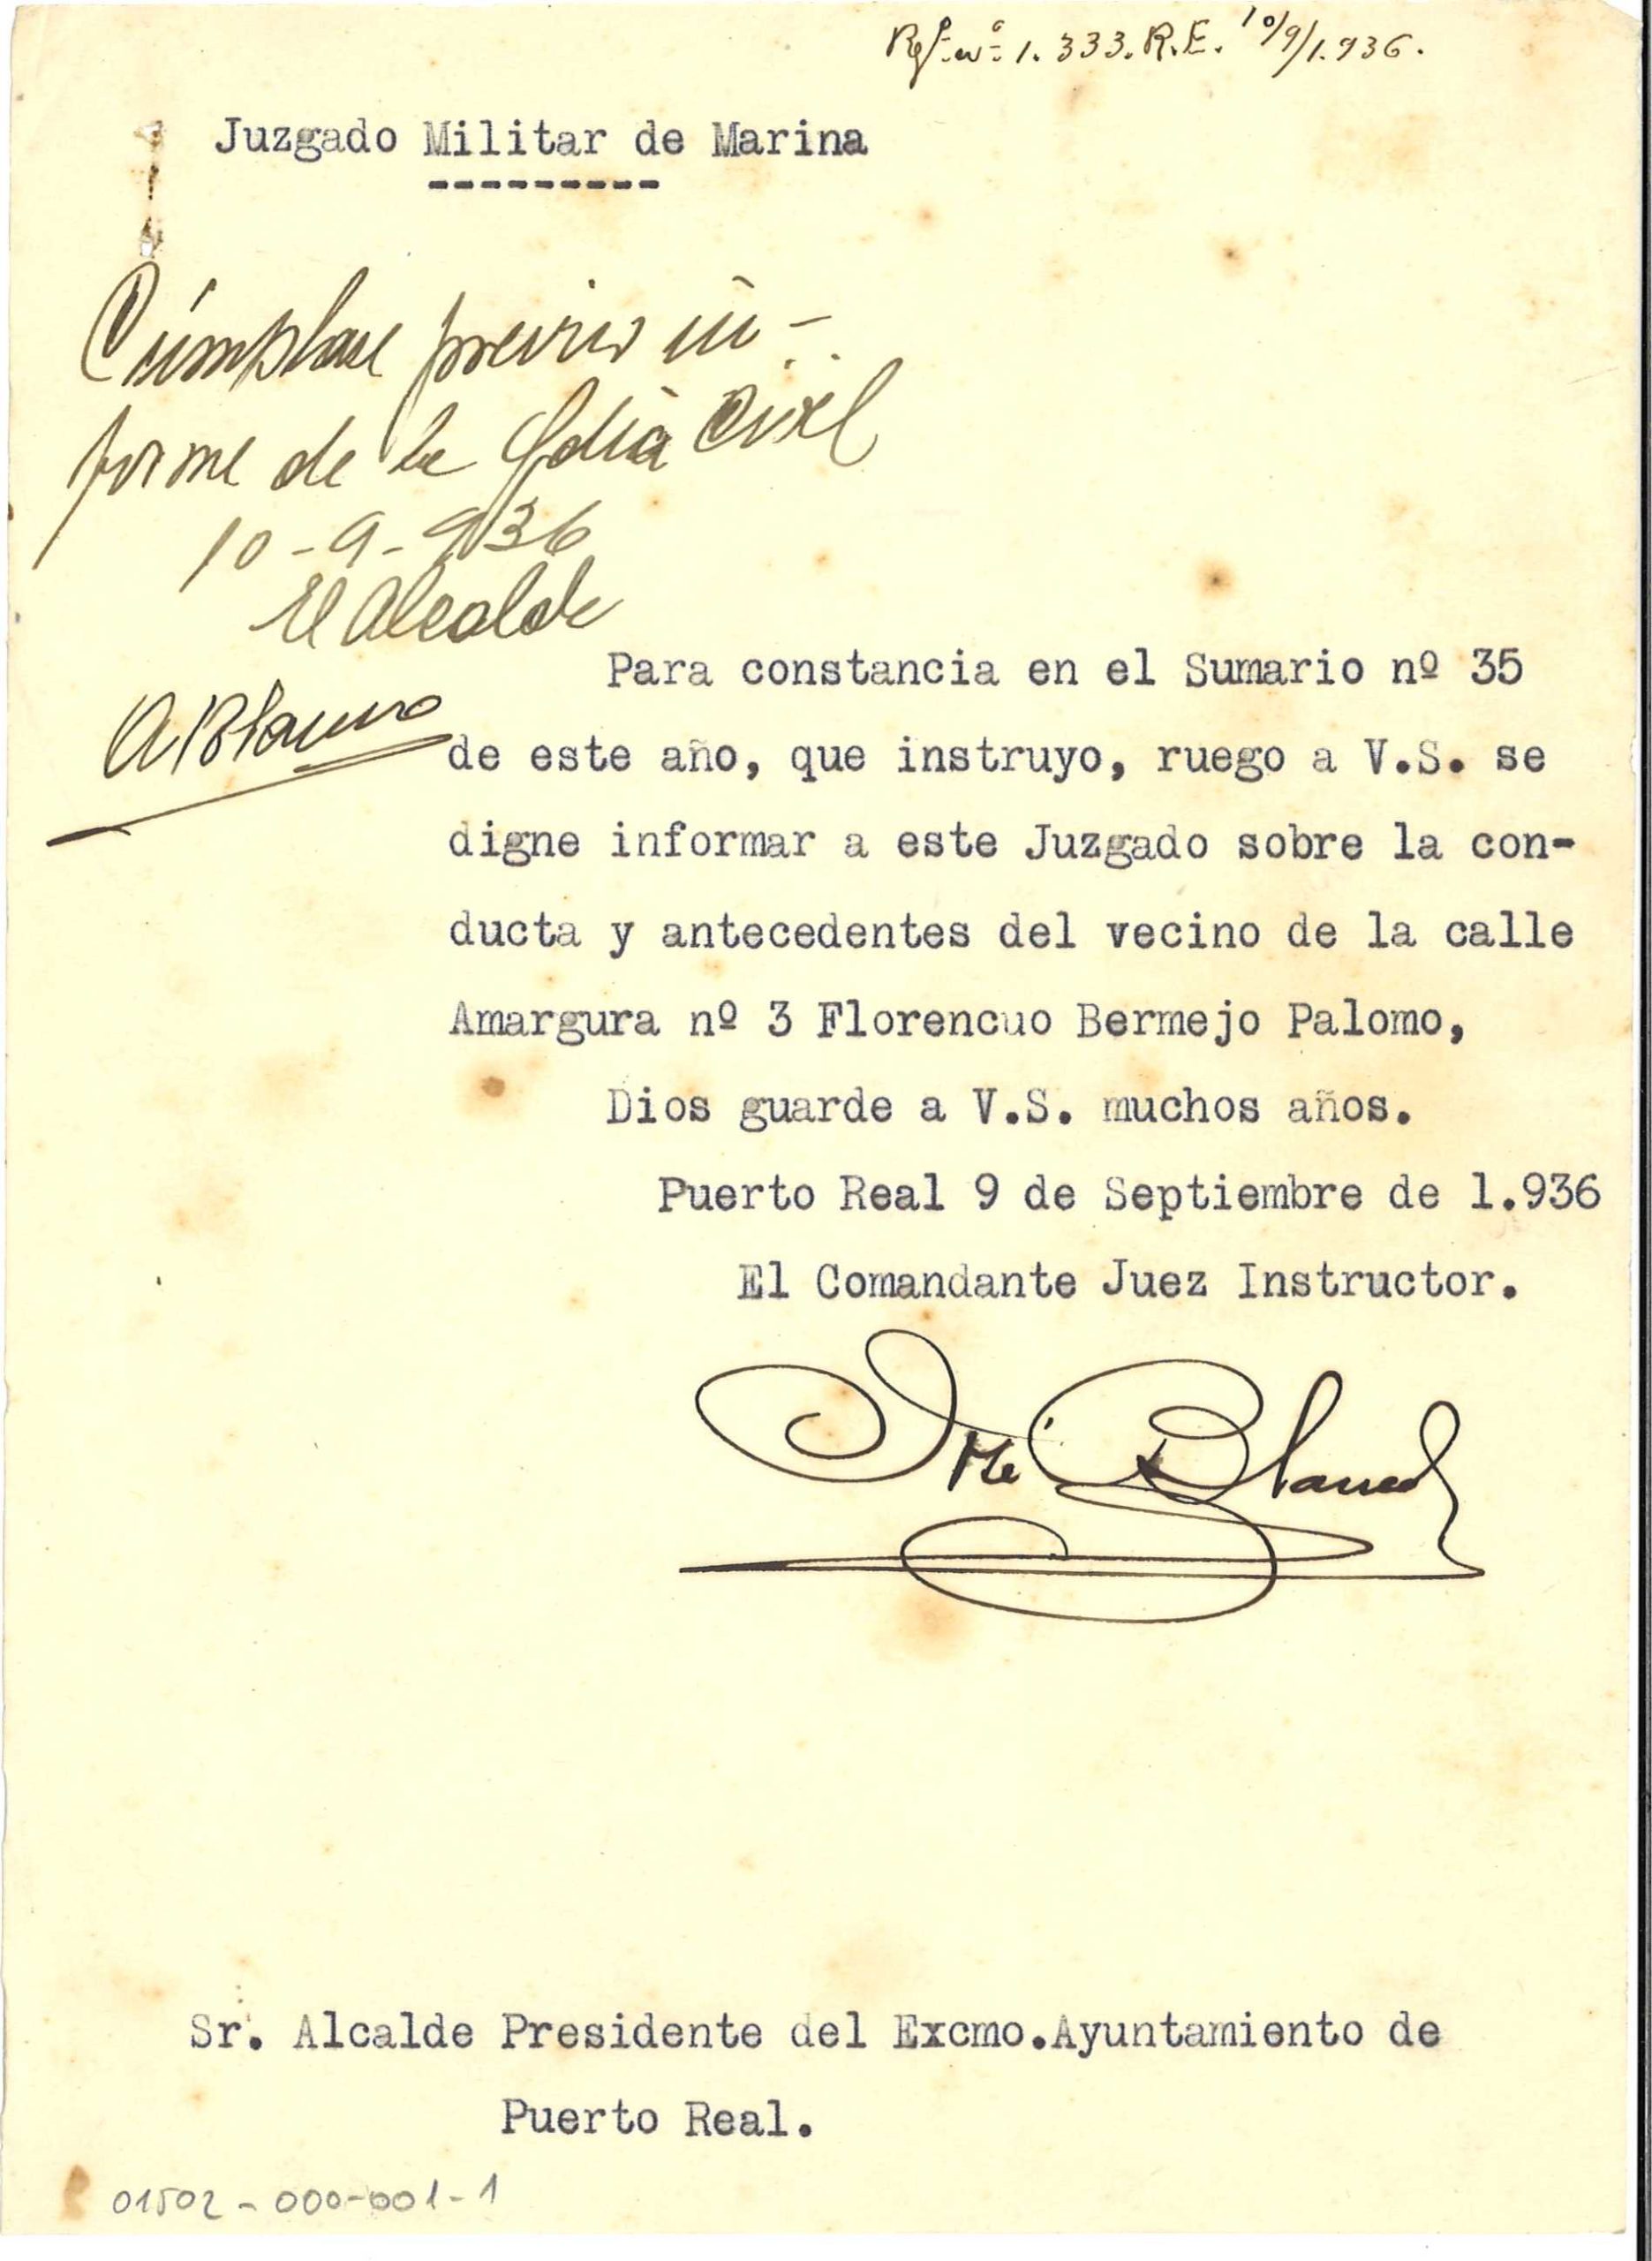 Regº nº 1.333. R.E. 10/9/1.936.
Juzgado Militar de Marina
---------
Cúmplase previo in-
forme de la Gdia Civil
10-9-936
El Alcalde
Para constancia en el Sumario nº 35
de este año, que instruyo, ruego a V.S. se
digne informar a este Juzgado sobre la con-
ducta y antecedentes del vecino de la calle
Amargura nº 3 Florencuo Bermejo Palomo,
Dios guarde a V.S. muchos años.
Puerto Real 9 de Septiembre de 1.936
El Comandante Juez Instructor.
Blanco
Sr. Alcalde Presidente del Excmo.Ayuntamiento de
Puerto Real.
01502-000-001-1